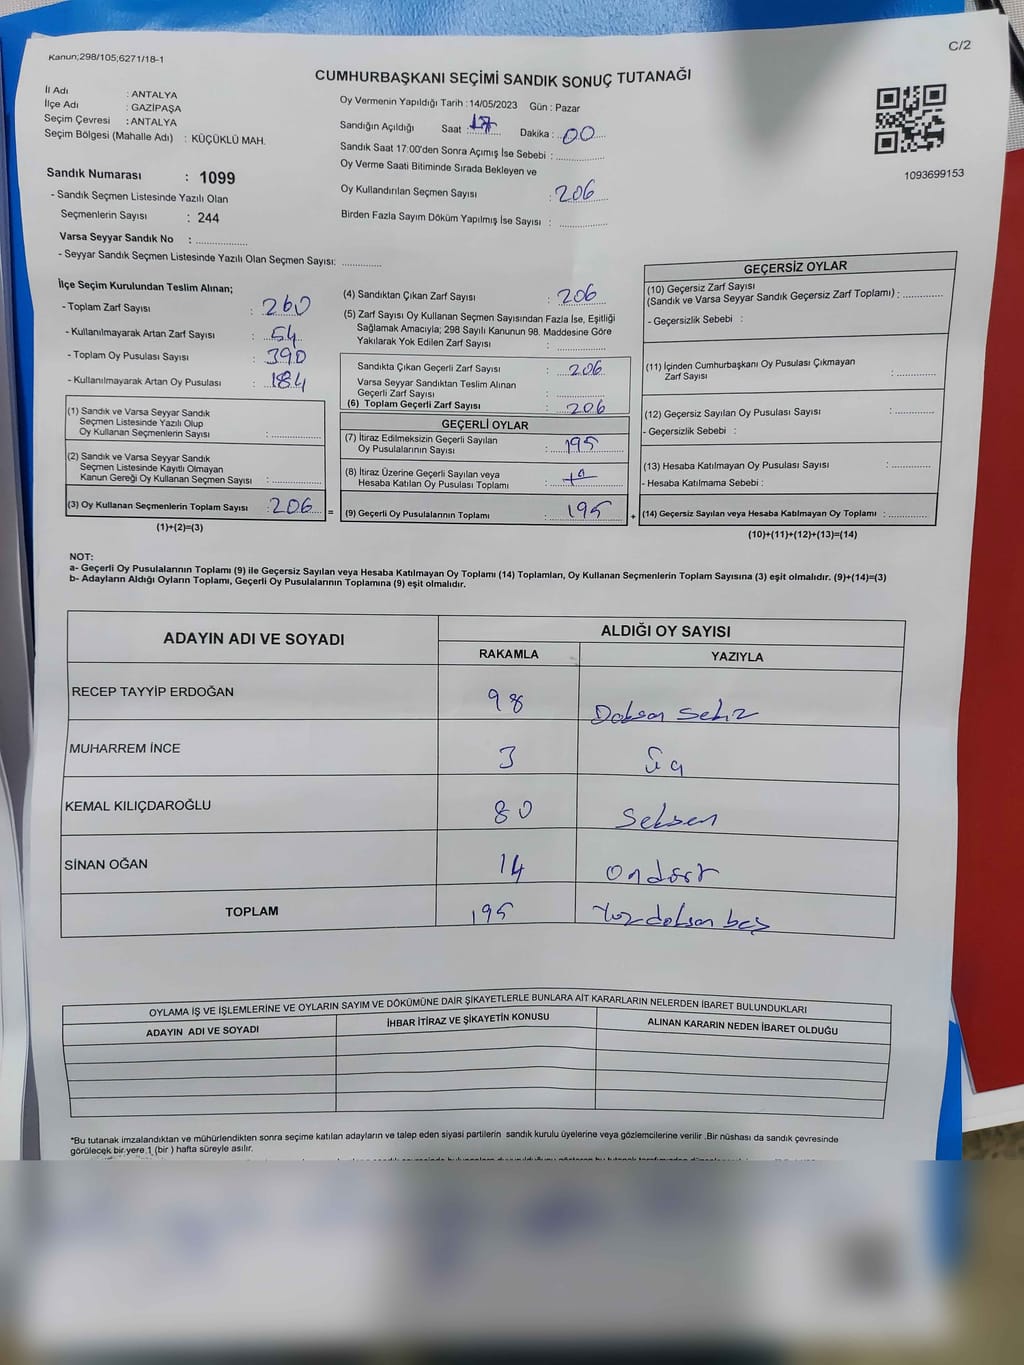 C/2
Kanun;298/105;6271/18-1
CUMHURBAŞKANI SEÇİMİ SANDIK SONUÇ TUTANAĞI
İl Adı : ANTALYA
İlçe Adı : GAZİPAŞA
Seçim Çevresi : ANTALYA
Seçim Bölgesi (Mahalle Adı) : KÜÇÜKLÜ MAH.
Sandık Numarası : 1099
- Sandık Seçmen Listesinde Yazılı Olan
Seçmenlerin Sayısı : 244
Varsa Seyyar Sandık No : ..................
- Seyyar Sandık Seçmen Listesinde Yazılı Olan Seçmen Sayısı: .............
Oy Vermenin Yapıldığı Tarih : 14/05/2023 Gün : Pazar
Sandığın Açıldığı Saat : 17 Dakika : 00
Sandık Saat 17:00'den Sonra Açımış İse Sebebi : ................
Oy Verme Saati Bitiminde Sırada Bekleyen ve
Oy Kullandırılan Seçmen Sayısı : 206
Birden Fazla Sayım Döküm Yapılmış İse Sayısı : ................
1093699153
İlçe Seçim Kurulundan Teslim Alınan;
- Toplam Zarf Sayısı : 260
- Kullanılmayarak Artan Zarf Sayısı : 54
- Toplam Oy Pusulası Sayısı : 390
- Kullanılmayarak Artan Oy Pusulası : 184
(1) Sandık ve Varsa Seyyar Sandık
Seçmen Listesinde Yazılı Olup
Oy Kullanan Seçmenlerin Sayısı : ................
(2) Sandık ve Varsa Seyyar Sandık
Seçmen Listesinde Kayıtlı Olmayan
Kanun Gereği Oy Kullanan Seçmen Sayısı : ................
(3) Oy Kullanan Seçmenlerin Toplam Sayısı : 206 =
(1)+(2)=(3)
(4) Sandıktan Çıkan Zarf Sayısı : 206
(5) Zarf Sayısı Oy Kullanan Seçmen Sayısından Fazla İse, Eşitliği
Sağlamak Amacıyla; 298 Sayılı Kanunun 98. Maddesine Göre
Yakılarak Yok Edilen Zarf Sayısı : ................
Sandıkta Çıkan Geçerli Zarf Sayısı : 206
Varsa Seyyar Sandıktan Teslim Alınan
Geçerli Zarf Sayısı : ................
(6) Toplam Geçerli Zarf Sayısı : 206
GEÇERLİ OYLAR
(7) İtiraz Edilmeksizin Geçerli Sayılan
Oy Pusulalarının Sayısı : 195
(8) İtiraz Üzerine Geçerli Sayılan veya
Hesaba Katılan Oy Pusulası Toplamı :
(9) Geçerli Oy Pusulalarının Toplamı : 195 +
GEÇERSİZ OYLAR
(10) Geçersiz Zarf Sayısı
(Sandık ve Varsa Seyyar Sandık Geçersiz Zarf Toplamı) : .............
- Geçersizlik Sebebi :
(11) İçinden Cumhurbaşkanı Oy Pusulası Çıkmayan
Zarf Sayısı : .............
(12) Geçersiz Sayılan Oy Pusulası Sayısı : .............
- Geçersizlik Sebebi :
(13) Hesaba Katılmayan Oy Pusulası Sayısı : .............
- Hesaba Katılmama Sebebi :
(14) Geçersiz Sayılan veya Hesaba Katılmayan Oy Toplamı : .............
(10)+(11)+(12)+(13)=(14)
NOT:
a- Geçerli Oy Pusulalarının Toplamı (9) ile Geçersiz Sayılan veya Hesaba Katılmayan Oy Toplamı (14) Toplamları, Oy Kullanan Seçmenlerin Toplam Sayısına (3) eşit olmalıdır. (9)+(14)=(3)
b- Adayların Aldığı Oyların Toplamı, Geçerli Oy Pusulalarının Toplamına (9) eşit olmalıdır.
ADAYIN ADI VE SOYADI ALDIĞI OY SAYISI
RAKAMLA YAZIYLA
RECEP TAYYİP ERDOĞAN 98 Doksan sekiz
MUHARREM İNCE 3 üç
KEMAL KILIÇDAROĞLU 80 Seksen
SİNAN OĞAN 14 Ondört
TOPLAM 195 Yüzdoksan beş
OYLAMA İŞ VE İŞLEMLERİNE VE OYLARIN SAYIM VE DÖKÜMÜNE DAİR ŞİKAYETLERLE BUNLARA AİT KARARLARIN NELERDEN İBARET BULUNDUKLARI
ADAYIN ADI VE SOYADI İHBAR İTİRAZ VE ŞİKAYETİN KONUSU ALINAN KARARIN NEDEN İBARET OLDUĞU
*Bu tutanak imzalandıktan ve mühürlendikten sonra seçime katılan adayların ve talep eden siyasi partilerin sandık kurulu üyelerine veya gözlemcilerine verilir .Bir nüshası da sandık çevresinde
görülecek bir yere 1 (bir ) hafta süreyle asılır.